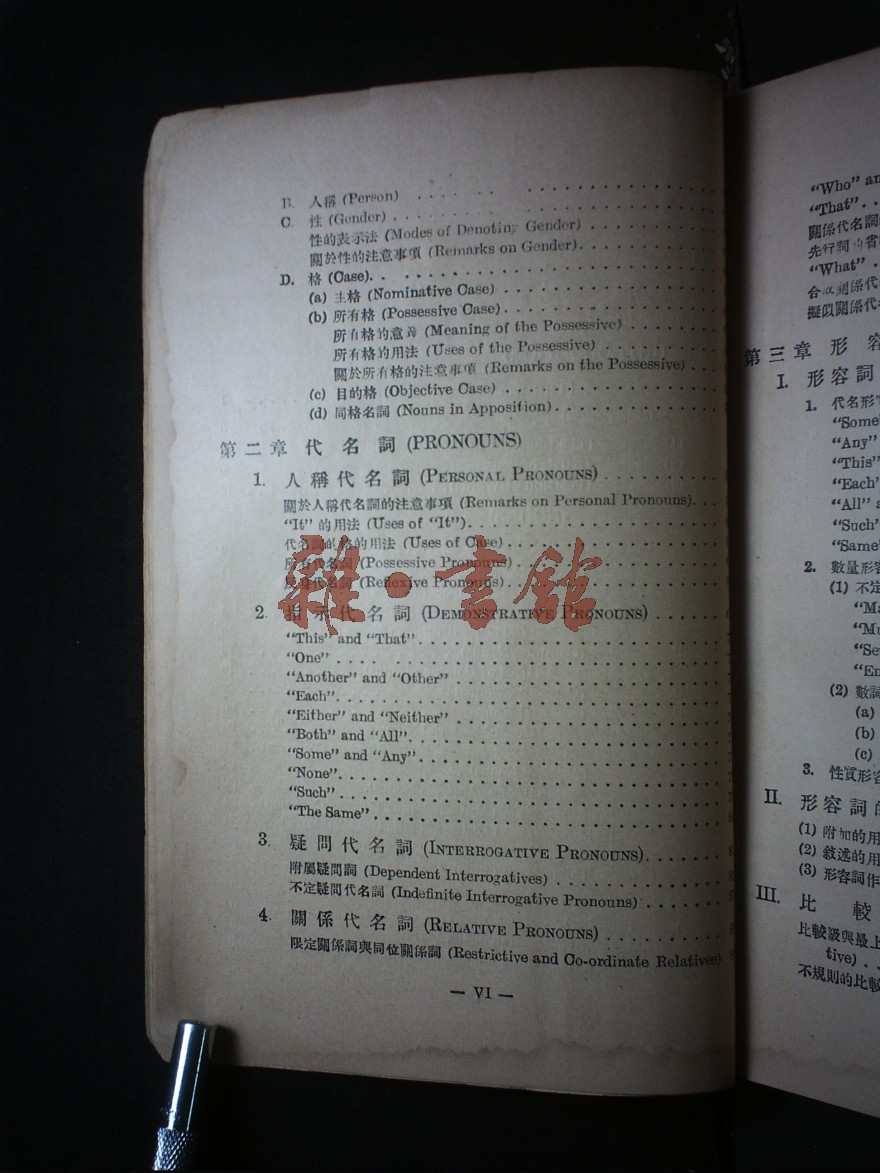 B. 人稱 (Person)
C. 性 (Gender)
性的表示法 (Modes of Denoting Gender)
關於性的注意事項 (Remarks on Gender)
D. 格 (Case)
(a) 主格 (Nominative Case)
(b) 所有格 (Possessive Case)
所有格的意義 (Meaning of the Possessive)
所有格的用法 (Uses of the Possessive)
關於所有格的注意事項 (Remarks on the Possessive)
(c) 目的格 (Objective Case)
(d) 同格名詞 (Nouns in Apposition)
第二章 代名詞 (PRONOUNS)
1. 人稱代名詞 (PERSONAL PRONOUNS)
關於人稱代名詞的注意事項 (Remarks on Personal Pronouns)
“It” 的用法 (Uses of “It”)
代名詞的格的用法 (Uses of Case)
所有代名詞 (Possessive Pronouns)
反身代名詞 (Reflexive Pronouns)
雜·書館
2. 指示代名詞 (DEMONSTRATIVE PRONOUNS)
“This” and “That”
“One”
“Another” and “Other”
“Each”
“Either” and “Neither”
“Both” and “All”
“Some” and “Any”
“None”
“Such”
“The Same”
3. 疑問代名詞 (INTERROGATIVE PRONOUNS)
附屬疑問詞 (Dependent Interrogatives)
不定疑問代名詞 (Indefinite Interrogative Pronouns)
4. 關係代名詞 (RELATIVE PRONOUNS)
限定關係詞與同位關係詞 (Restrictive and Co-ordinate Relatives)
— VI —
“Who”
“That”
關係代名詞
先行詞
“What”
關係代
擬似關係代
第三章 形容
I. 形容詞
1. 代名形
“Some”
“Any”
“This”
“Each”
“All”
“Such”
“Same”
2. 數量形容
(1) 不定
(2) 數詞
(a)
(b)
(c)
3. 性質形容
II. 形容詞的
(1) 附加的用
(2) 敘述的用
(3) 形容詞作
III. 比較
比較級與最上
tive)
不規則的比較